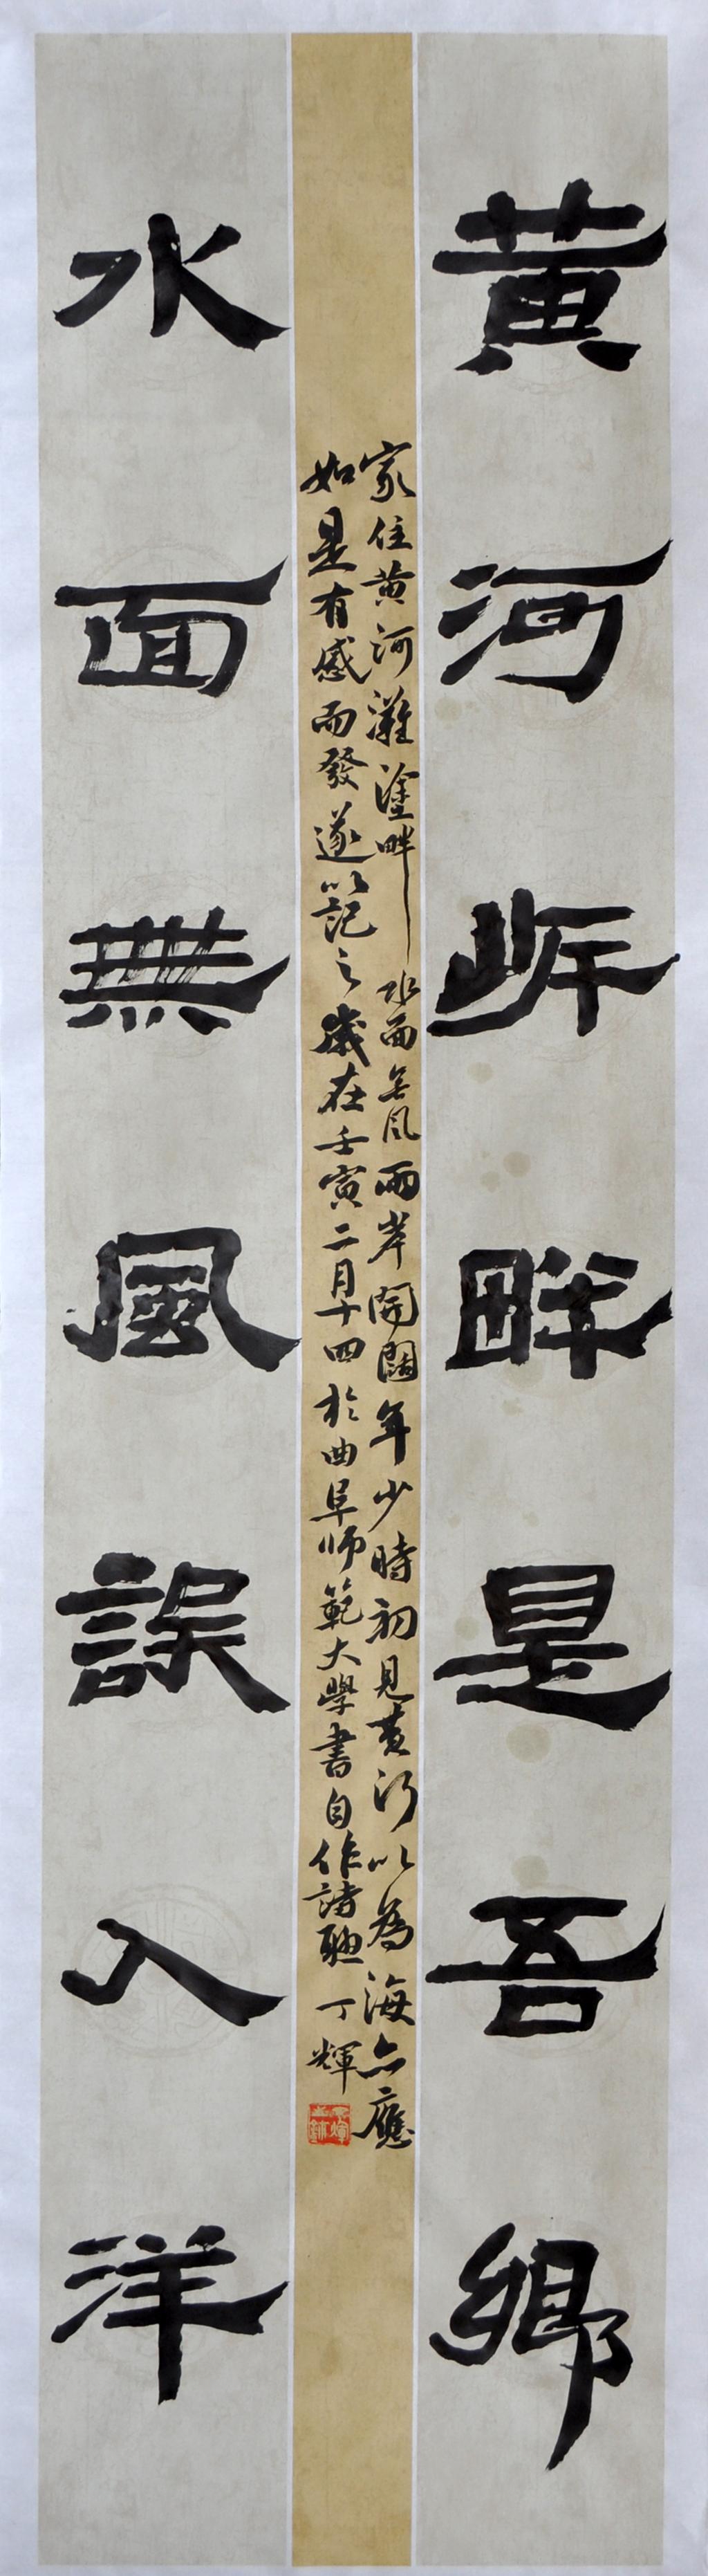 黄河岸畔是吾鄉
家住黄河灘塗畔水面无风兩岸開闊年少時初見黄河以為海亦應
如是有感而發遂以記之歲在壬寅二月十四於曲阜師範大學書自作诗聯丁輝
水面無風誤入洋